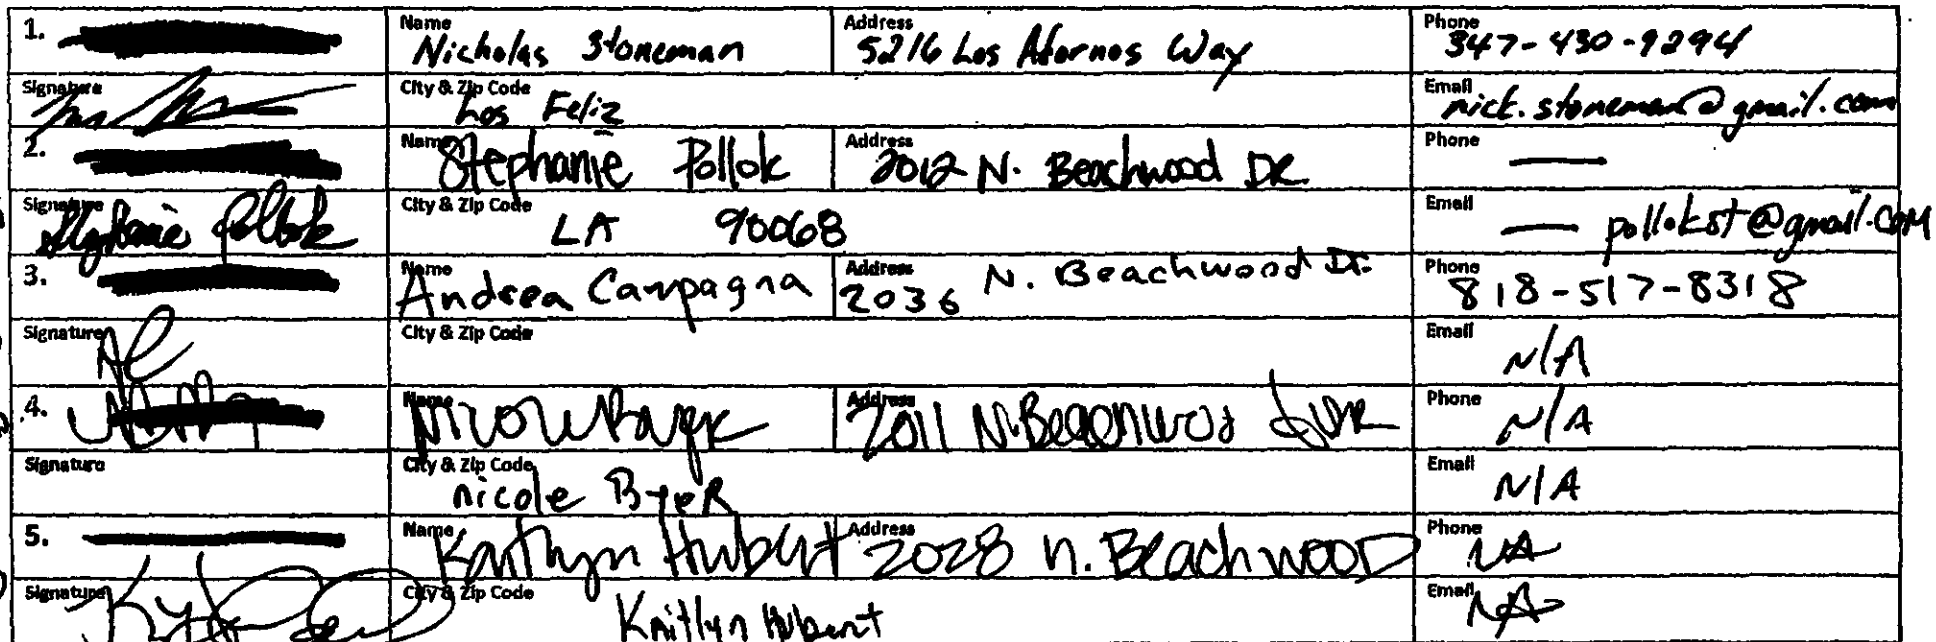 1. Name Nicholas Stoneman Address 5216 Los Afornos Way Phone 347-430-9294
Signature City & Zip Code Los Feliz Email nick.stoneman@gmail.com
2. Name Stephanie Pollok Address 2012 N. Beachwood DR Phone —
Signature Stephanie Pollok City & Zip Code LA 90068 Email — pollokst@gmail.com
3. Name Andrea Campagna Address 2036 N. Beachwood Dr. Phone 818-517-8318
Signature City & Zip Code Email N/A
4. Name Address 2011 N. Beachwood Phone N/A
Signature City & Zip Code nicole ByeR Email N/A
5. Name Kaitlyn Hubert Address 2028 n. BeachwooD Phone NA
Signature City & Zip Code Kaitlyn Hubert Email NA